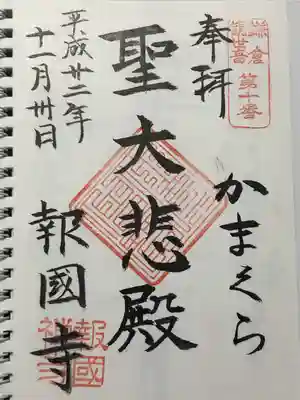 鎌倉
観音
第十番
奉拝
かまくら
聖大悲殿
平成廿二年
十一月卅日
報國寺
報國
禅寺